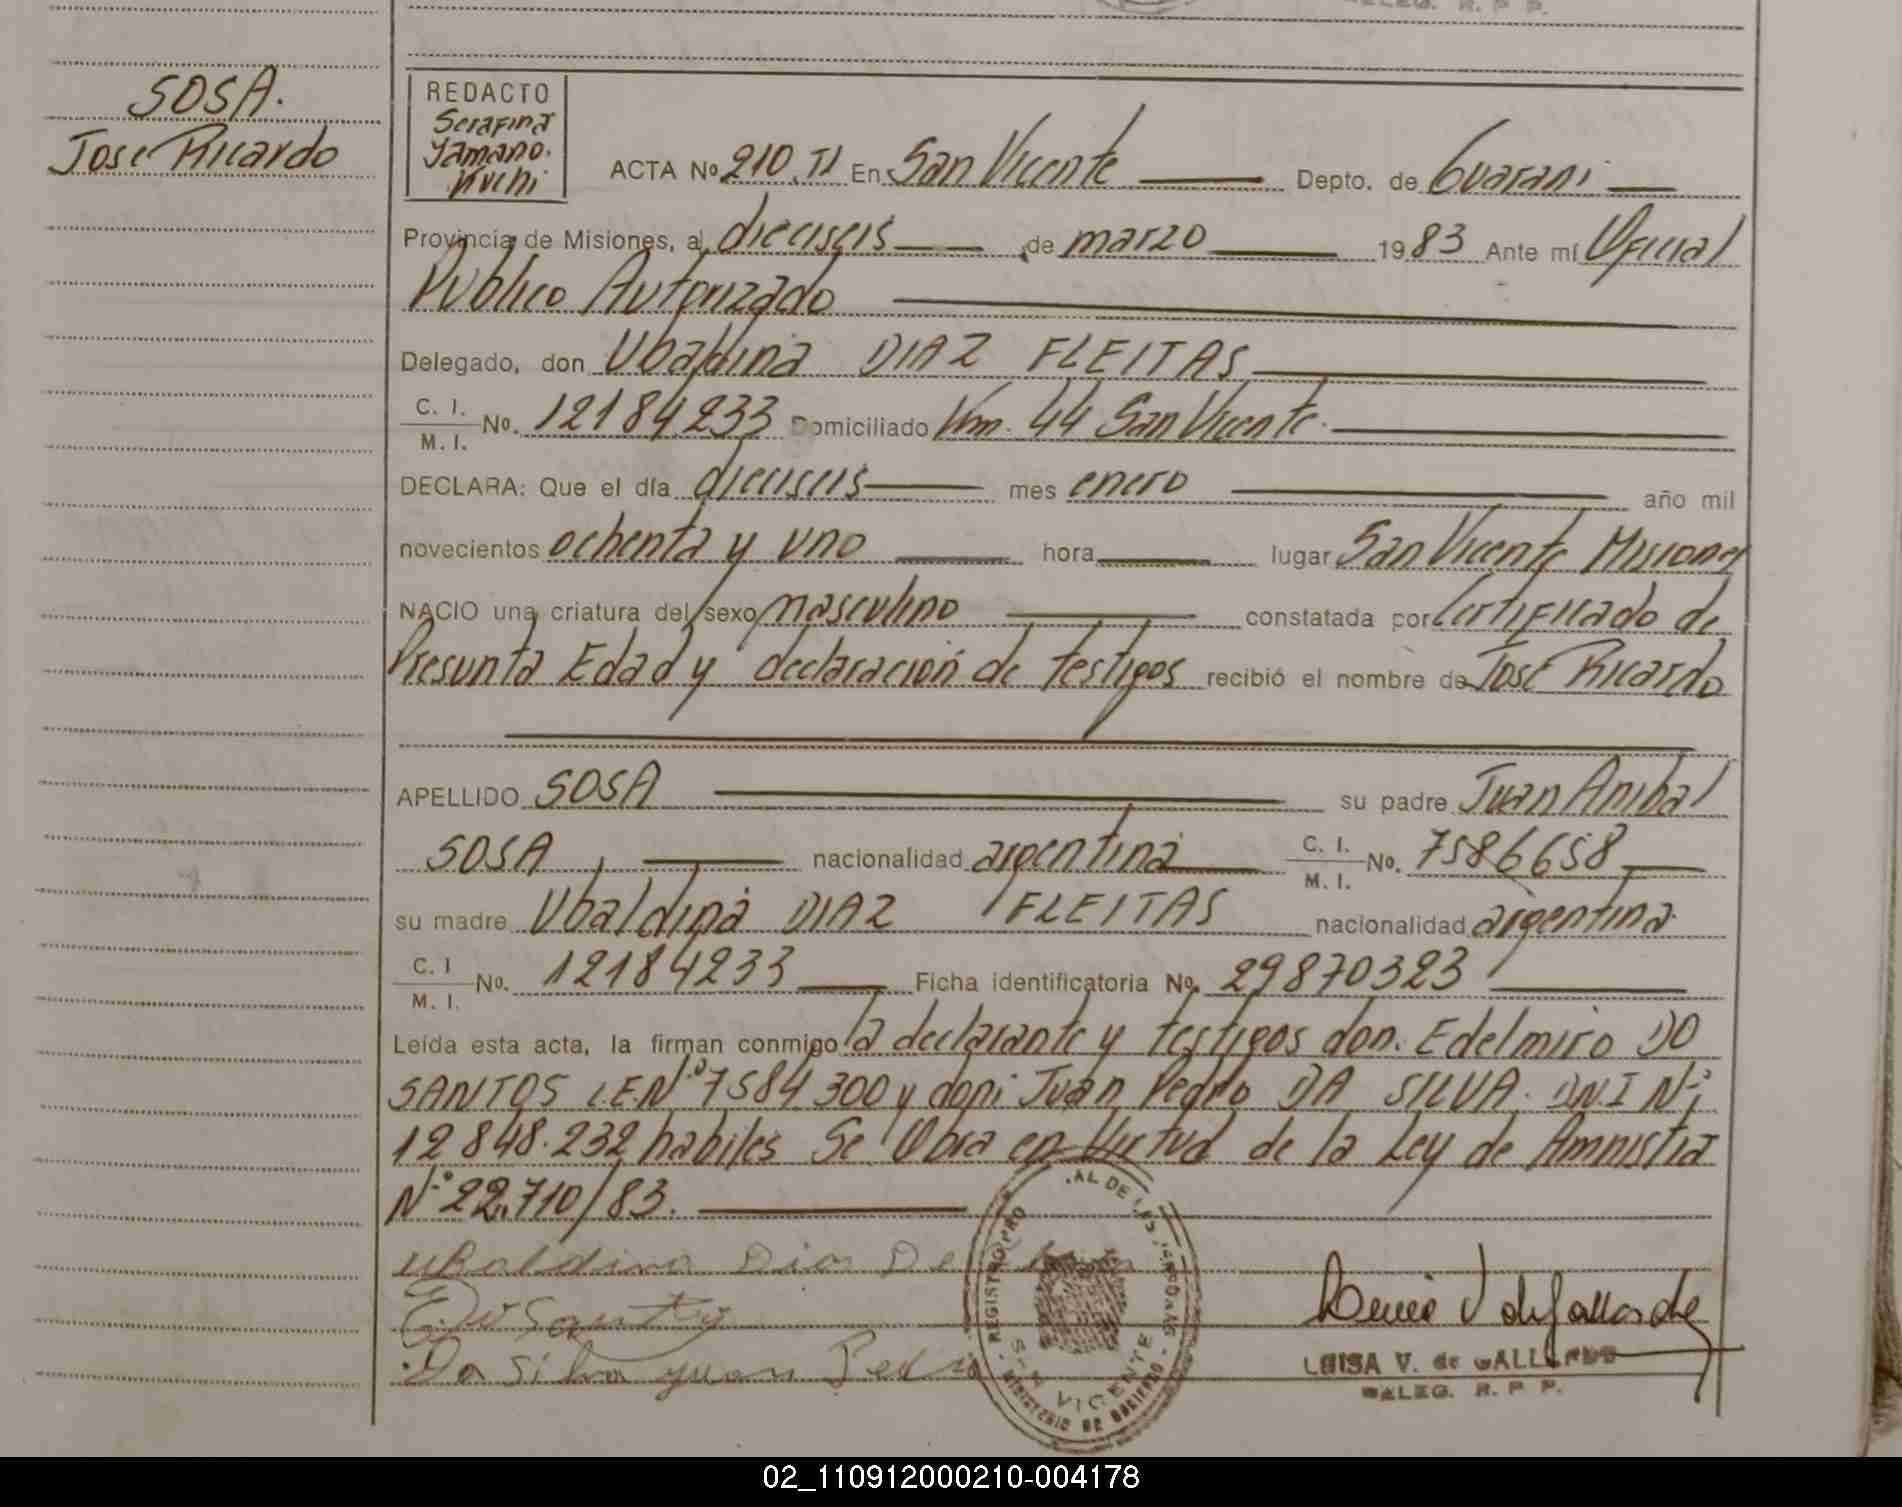 SOSA.
José Ricardo
REDACTO
Serafina
Yamano.
Kuchi
ACTA Nº 210. TI En San Vicente Depto. de Guarani
Provincia de Misiones, a dieciseis de marzo 1983 Ante mí Oficial
Publico Autorizado
Delegado, don Ubaldina DIAZ FLEITAS
C. I. / M. I. No. 12184233 Domiciliado Km. 44 San Vicente.
DECLARA: Que el día dieciseis mes enero año mil
novecientos ochenta y uno hora lugar San Vicente Misiones
NACIO una criatura del sexo masculino constatada por Certificado de
Presunta Edad y declaración de testigos recibió el nombre de José Ricardo
APELLIDO SOSA su padre Juan Anibal
SOSA nacionalidad argentina C. I. / M. I. No. 7586658
su madre Ubaldina DIAZ FLEITAS nacionalidad argentina
C. I / M. I. No. 12184233 Ficha identificatoria No. 29870323
Leída esta acta, la firman conmigo la declarante y testigos don. Edelmiro DO
SANTOS L.E.Nº 7584.300 y don: Juan Pedro DA SILVA. D.N.I Nº:
12848.232 habiles Se Obra en Virtud de la Ley de Amnistia
Nº 22.710/83.
Ubaldina Dias De
Da Silva Juan Pedro
REGISTRO PRO AL DE LAS PERSONAS
SAN VICENTE
MINISTERIO DE GOBIERNO
LUISA V. de GALLARDO
DELEG. R. P. P.
02_110912000210-004178